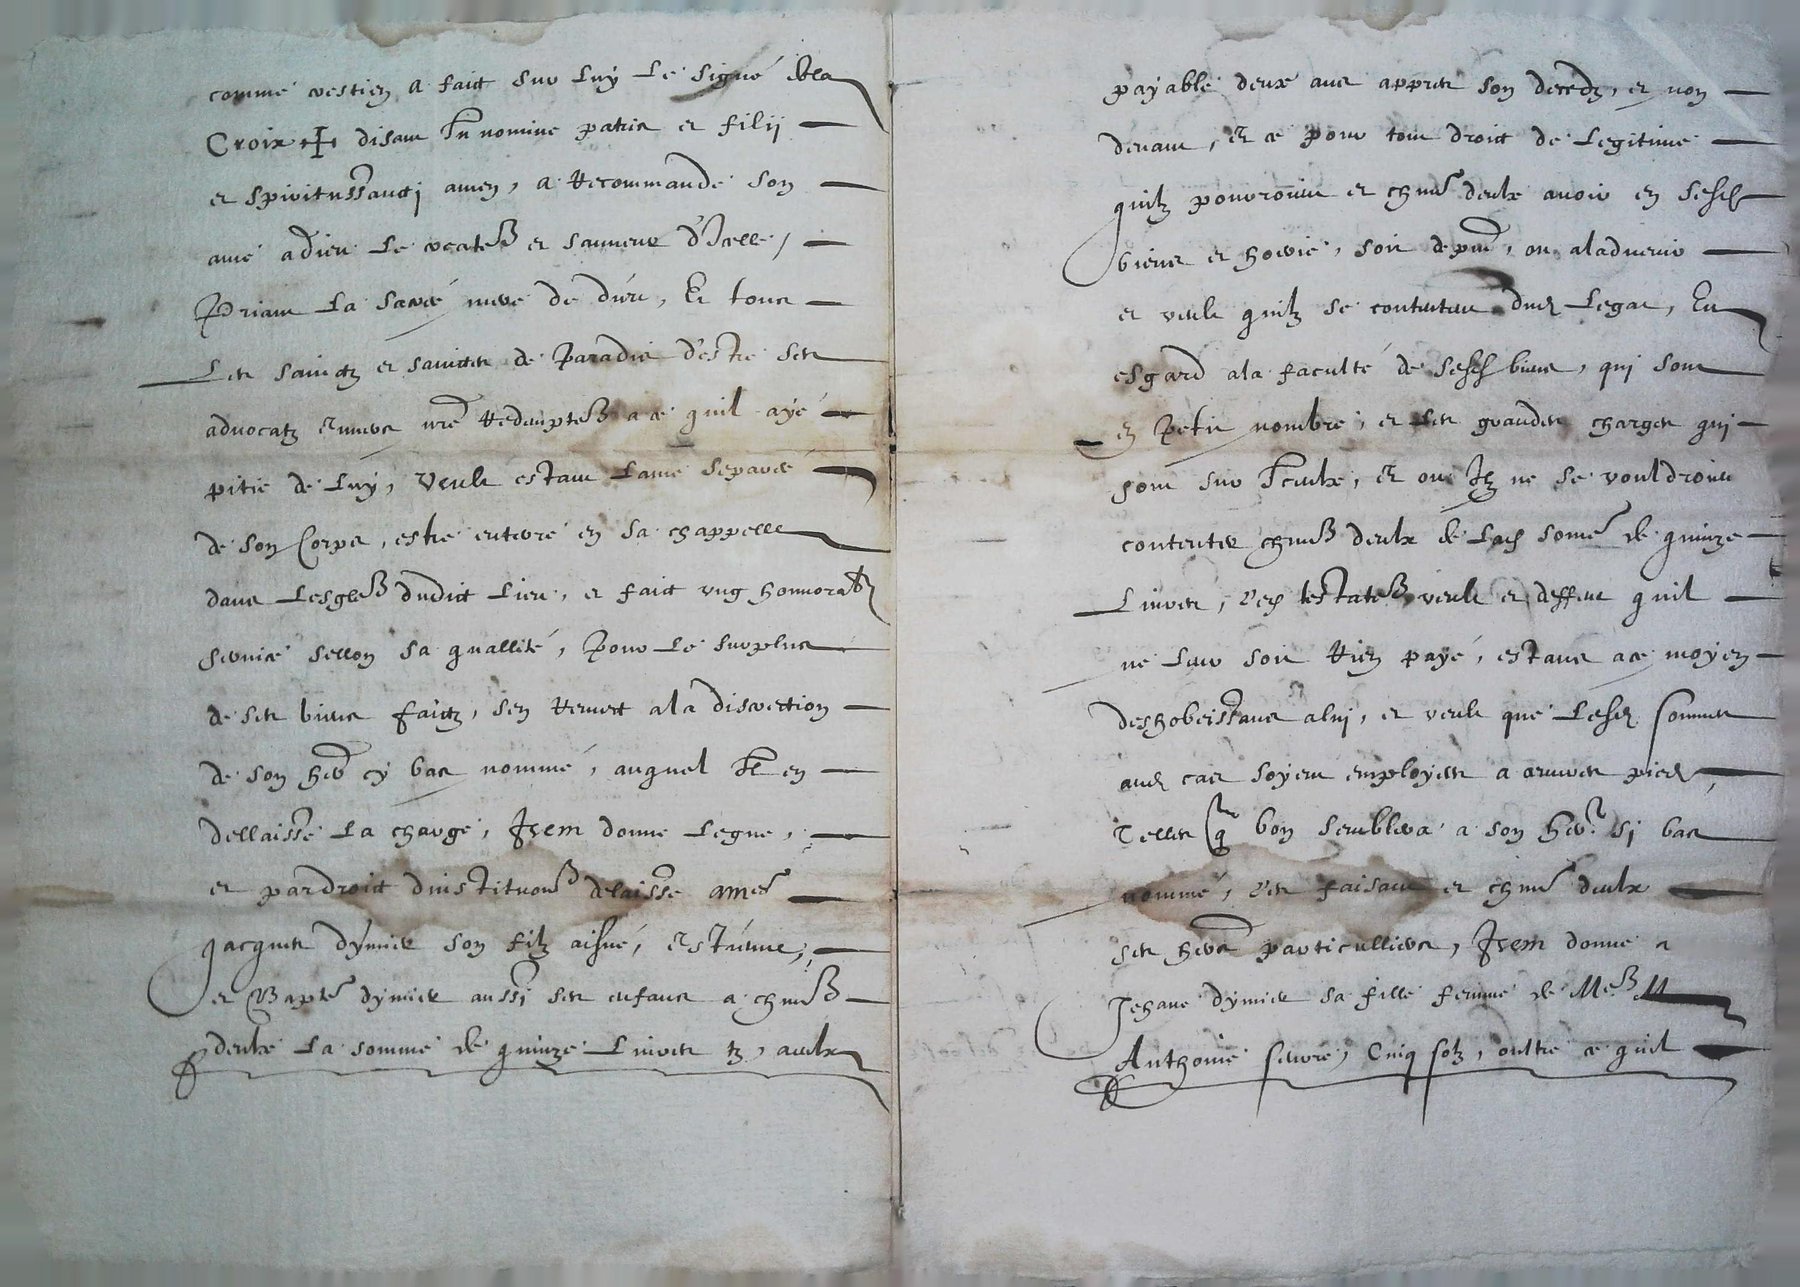 comme crestien a faict sur luy le signe de la
Croix ✠ disant In nomine patris et filii
et spiritussancti amen, a recommandé son
ame a dieu le createur et sauveur d'Icelle,
Priant la sacrée mere de dieu, Et tous
Les sainctz et sainctes de Paradis d'estre ses
advocatz envers nre Redempteur a ce quil aye
pitie de luy, Veult estant Lame separée
de son Corps, estre enterré en sa chappelle
dans Lesglise dudict Lieu, et faict ung honnorable
service sellon sa quallité, Pour le surplus
de ses biens faictz, sen remect a la discrection
de son her cy bas nommé, auquel Il en
dellaisse La charge, Item donne Legue,
et par droict dinstitution delaisse a mes
Jacques dymier son filz aisné, Estienne,
et Bapte dymier aussi ses enfans a chun
deulx La somme de quinze Livres tz, aulx
payable deux ans appres son decedz, et non
devant, Et ce pour tout droict de Legitime
quilz pourroient et chun deulx avoir en sesd
biens et horie, soit de pnt, ou a ladvenir
et veult quilz se contentent dud Legat, Eu
esgard a la faculté de sesd biens, qui sont
en Petit nombre, et les grandes charges qui
sont sur Iceulx, Et ou Ilz ne se vouldroint
contenter chun deulx de Lad some de quinze
Livres, Led testateur veult et deffent quil
ne Leur soit Rien payé, estans a ce moyen
deshobeissans a lui, et veult que Lesd sommes
aud cas soyent employées a œuvres pies,
Telles q bon semblera a son her si bas
nommé, Les faisant et chun deulx
ses hers particulliers, Item donne a
Jehane dymier sa fille femme de Me M
Anthoine faure, Cinq solz, oultre ce quil